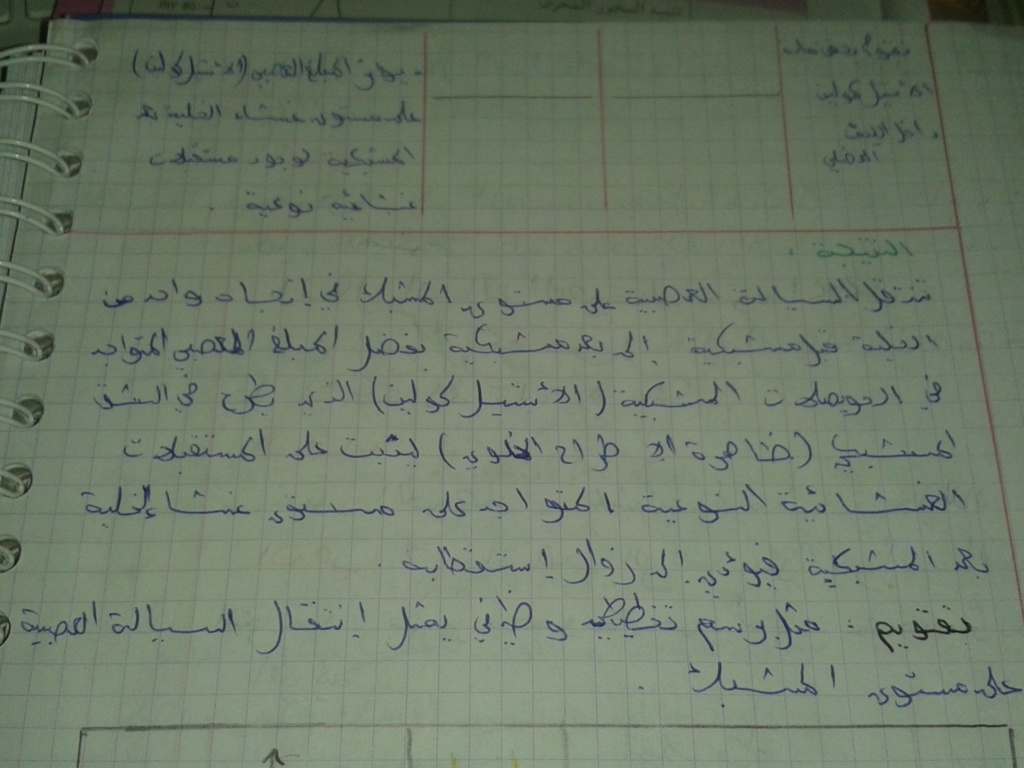 الأستيل كولين
- يؤثر المبلغ العصبي (الأستيل كولين)
على مستوى غشاء الخلية بعد
المشبكية لوجود مستقبلات
غشائية نوعية .
النتيجة .
تنتقل السيالة العصبية على مستوى المشبك في إتجاه واحد من
الخلية قبل مشبكية إلى بعد مشبكية بفضل المبلغ العصبي المتواجد
في الحويصلات المشبكية (الأستيل كولين) الذي يطرح في الشق
المشبكي (ظاهرة الإطراح الخلوي) ليثبت على المستقبلات
الغشائية النوعية المتواجد على مستوى غشاء الخلية
بعد المشبكية فيؤدي إلى زوال إستقطابه .
تقويم . مثل برسم تخطيطي وظيفي يمثل إنتقال السيالة العصبية
على مستوى المشبك .